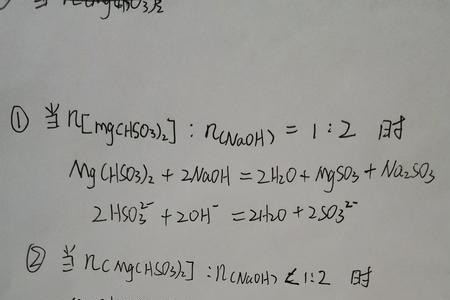 ① 当n[Mg(HSO3)2] : n(NaOH) = 1 : 2 时
Mg(HSO3)2 + 2NaOH = 2H2O + MgSO3 + Na2SO3
2HSO3²⁻ + 2OH⁻ = 2H2O + 2SO3²⁻
② 当n(Mg(HSO3)2] : n(NaOH) < 1:2 时